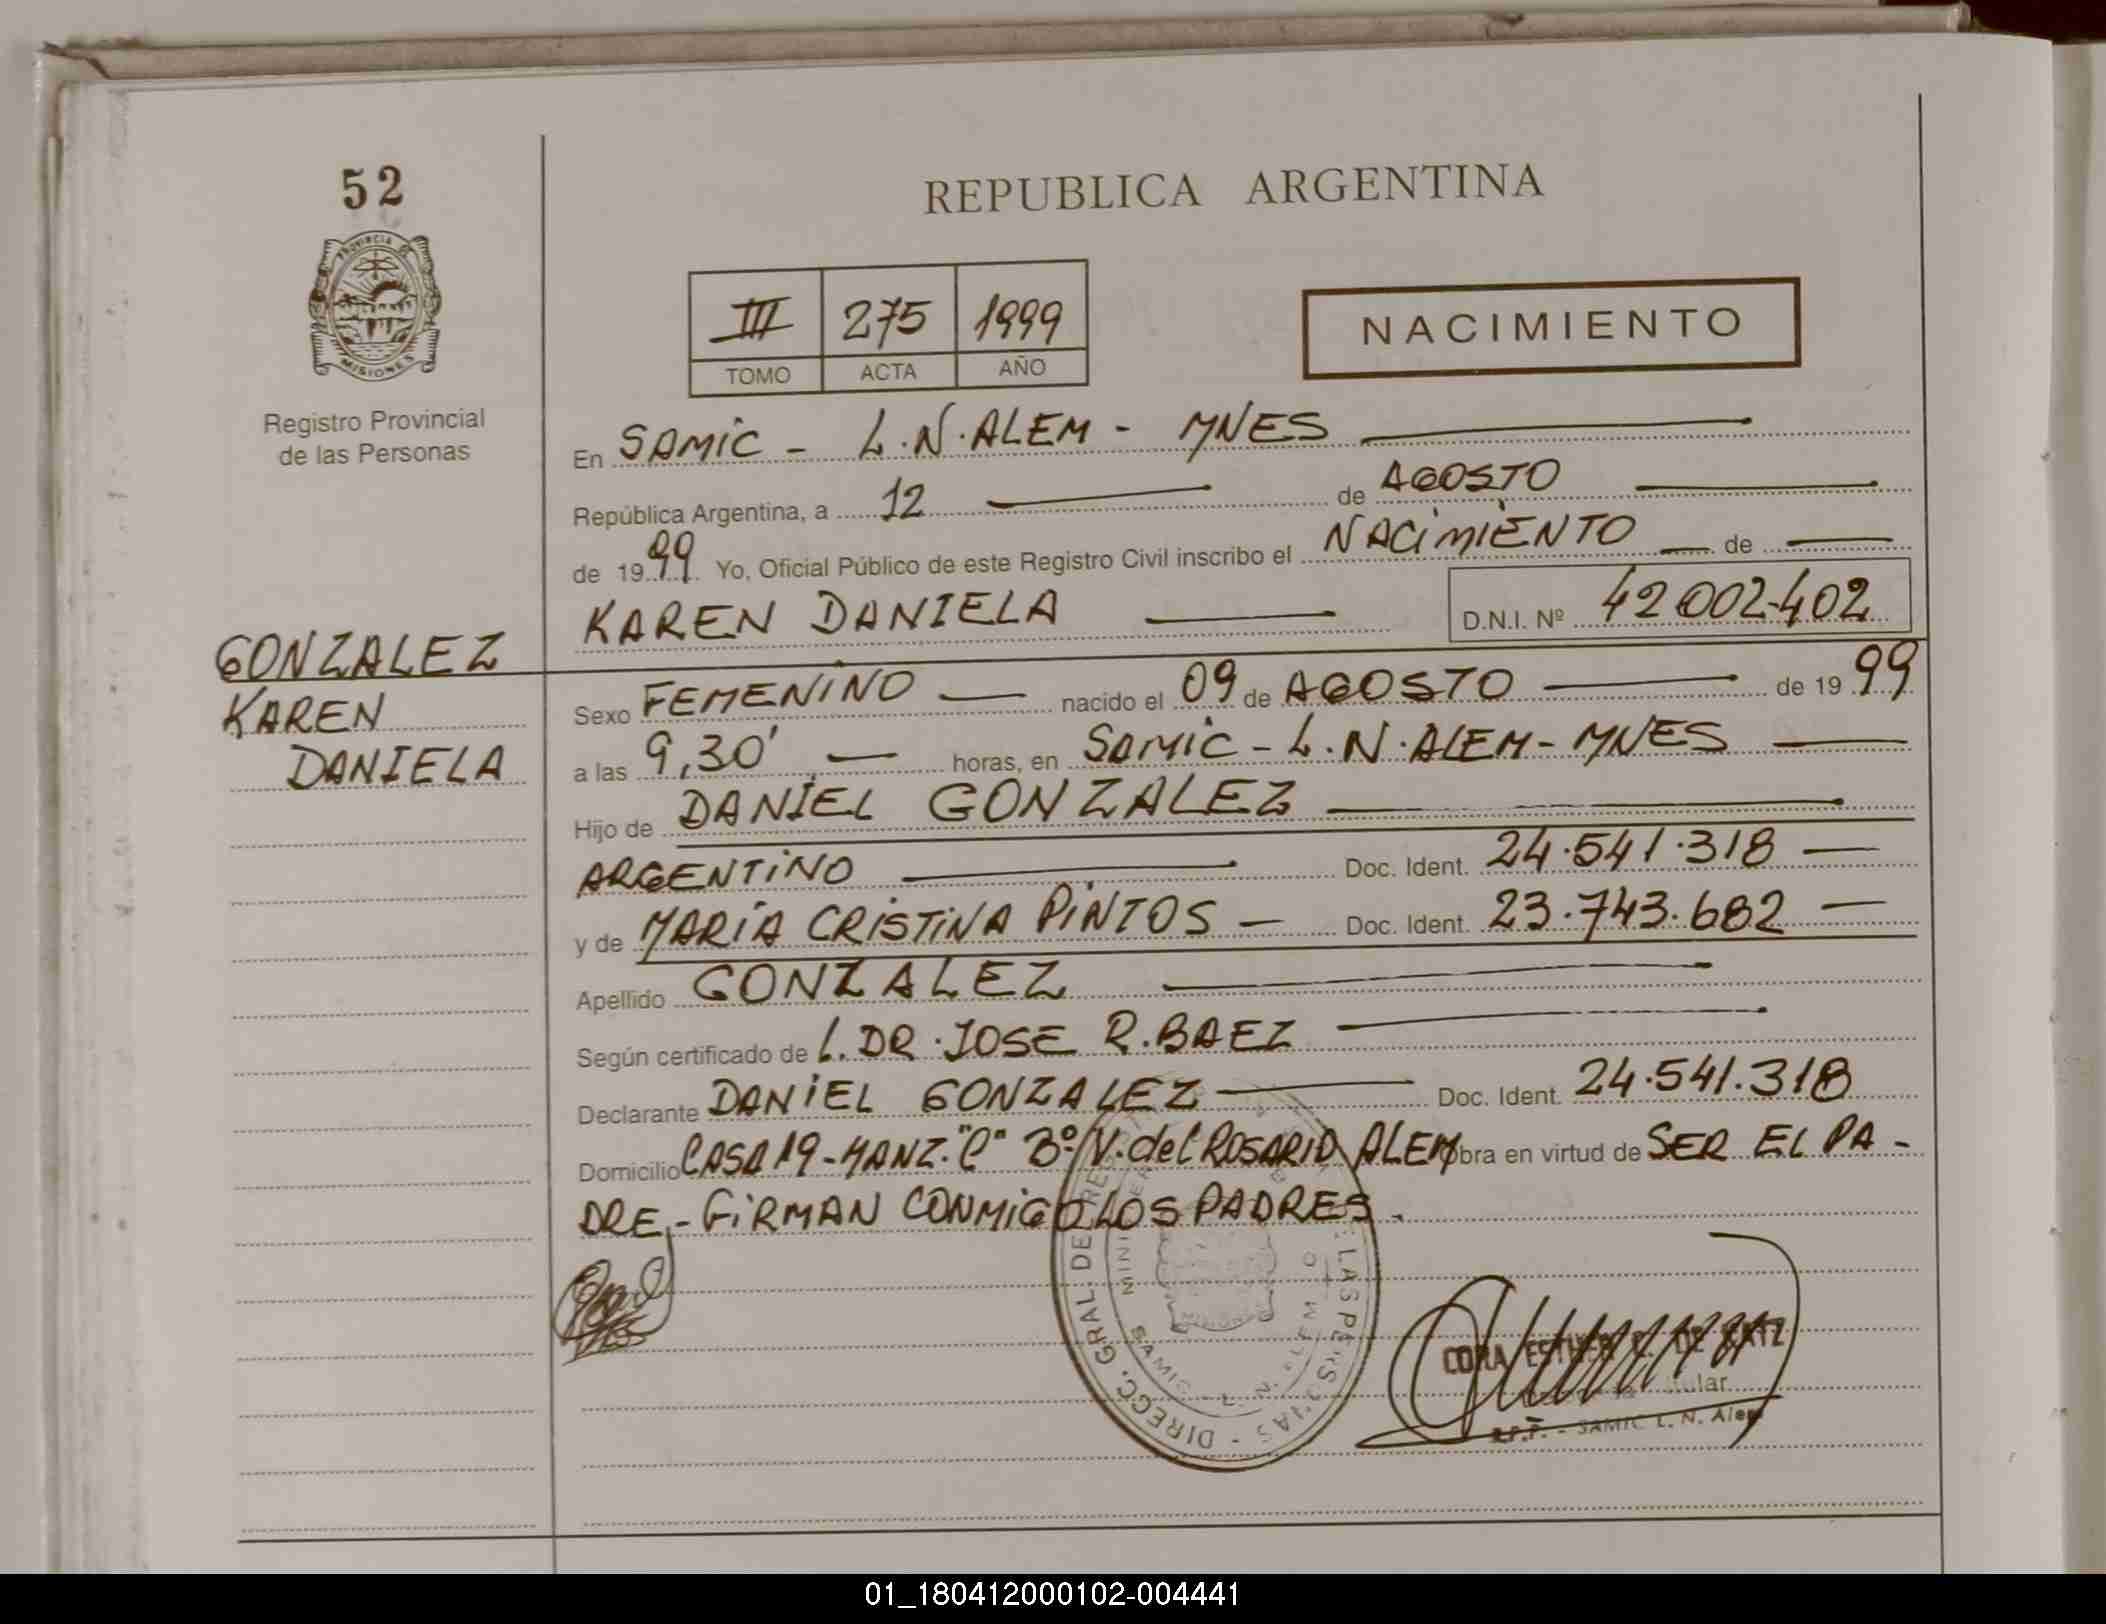 52
REPUBLICA ARGENTINA
PROVINCIA DE
MISIONES
Registro Provincial
de las Personas
III 275 1999
TOMO ACTA AÑO
NACIMIENTO
En SAMIC - L.N.ALEM - MNES
República Argentina, a 12 de AGOSTO
de 1999 Yo, Oficial Público de este Registro Civil inscribo el NACIMIENTO de
KAREN DANIELA D.N.I. Nº 42002.402
GONZALEZ
KAREN
DANIELA
Sexo FEMENINO nacido el 09 de AGOSTO de 1999
a las 9,30' horas, en SAMIC - L.N.ALEM - MNES
Hijo de DANIEL GONZALEZ
ARGENTINO Doc. Ident. 24.541.318
y de MARIA CRISTINA PINTOS Doc. Ident. 23.743.682
Apellido GONZALEZ
Según certificado de L. DR. JOSE R. BAEZ
Declarante DANIEL GONZALEZ Doc. Ident. 24.541.318
Domicilio CASA 19 - MANZ. "C" Bº N. del ROSARIO ALEM obra en virtud de SER EL PA-
DRE.- FIRMAN CONMIGO LOS PADRES.
DIRECC. GRAL. DE
LAS PERSONAS
SAMIC - L. N. ALEM
MISIONES
CORA ESTHER DE
R.P.P. - SAMIC L. N. Alem
01_180412000102-004441